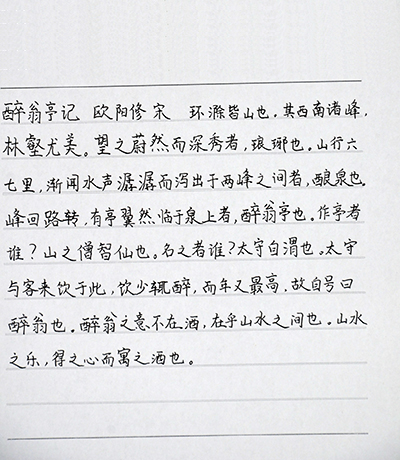 醉翁亭记 欧阳修 宋 环滁皆山也。其西南诸峰,
林壑尤美。望之蔚然而深秀者,琅琊也。山行六
七里,渐闻水声潺潺而泻出于两峰之间者,酿泉也。
峰回路转,有亭翼然临于泉上者,醉翁亭也。作亭者
谁?山之僧智仙也。名之者谁?太守自谓也。太守
与客来饮于此,饮少辄醉,而年又最高,故自号曰
醉翁也。醉翁之意不在酒,在乎山水之间也。山水
之乐,得之心而寓之酒也。